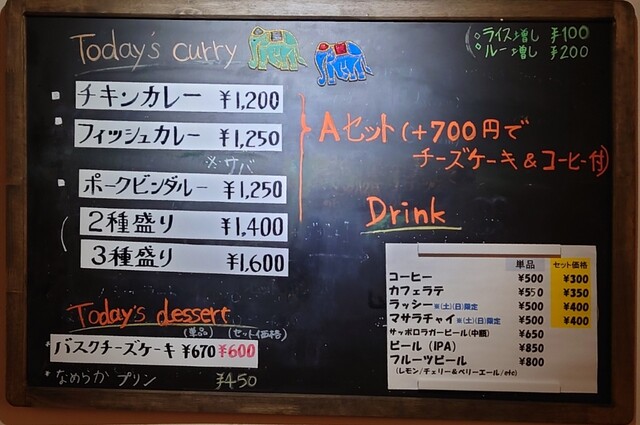 Today's curry
○ライス増し ¥100
○ルー増し ¥200
チキンカレー ¥1,200
フィッシュカレー ¥1,250
※サバ
ポークビンダルー ¥1,250
2種盛り ¥1,400
3種盛り ¥1,600
Aセット(+700円で
チーズケーキ&コーヒー付)
Drink
単品 セット価格
コーヒー ¥500 ¥300
カフェラテ ¥550 ¥350
ラッシー※(土)(日)限定 ¥500 ¥400
マサラチャイ※(土)(日)限定 ¥500 ¥400
サッポロラガービール(中瓶) ¥650
ビール(IPA) ¥850
フルーツビール ¥800
(レモン/チェリー&ベリーエール/etc)
Today's dessert
(単品) (セット価格)
*バスクチーズケーキ ¥670 ¥600
*なめらか プリン ¥450